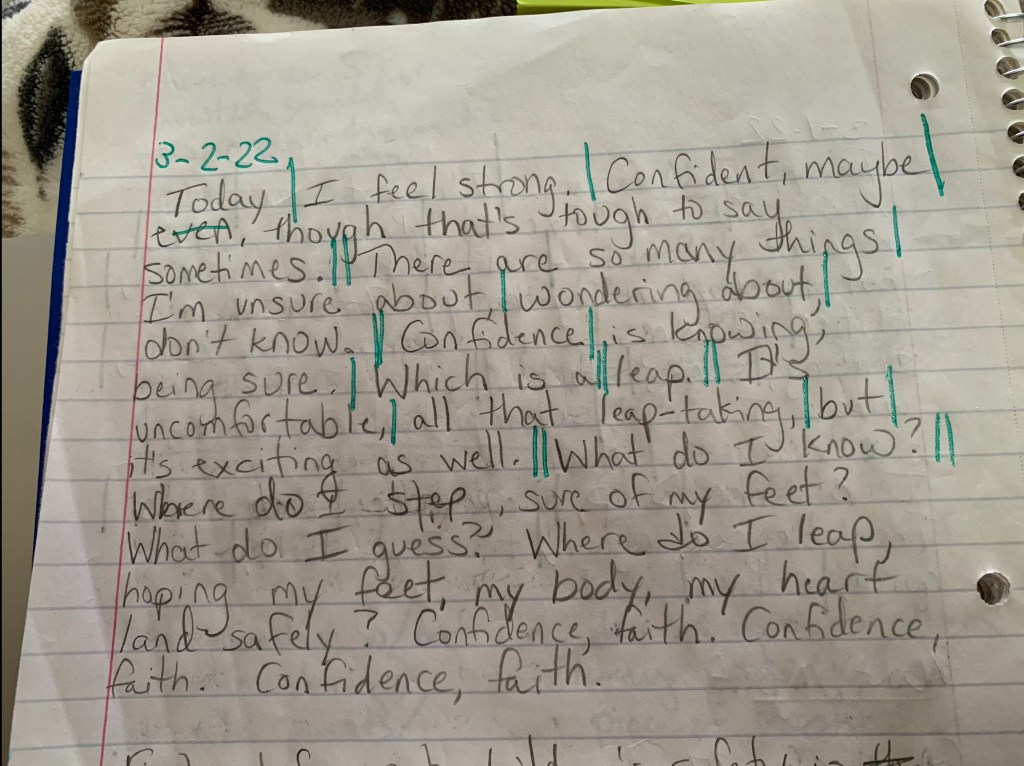 3-2-22
Today I feel strong. Confident, maybe
even, though that's tough to say
sometimes. There are so many things
I'm unsure about, wondering about,
don't know. Confidence is knowing,
being sure. Which is a leap. It's
uncomfortable, all that leap-taking, but
it's exciting as well. What do I know?
Where do I step, sure of my feet?
What do I guess? Where do I leap,
hoping my feet, my body, my heart
land safely? Confidence, faith. Confidence,
faith. Confidence, faith.